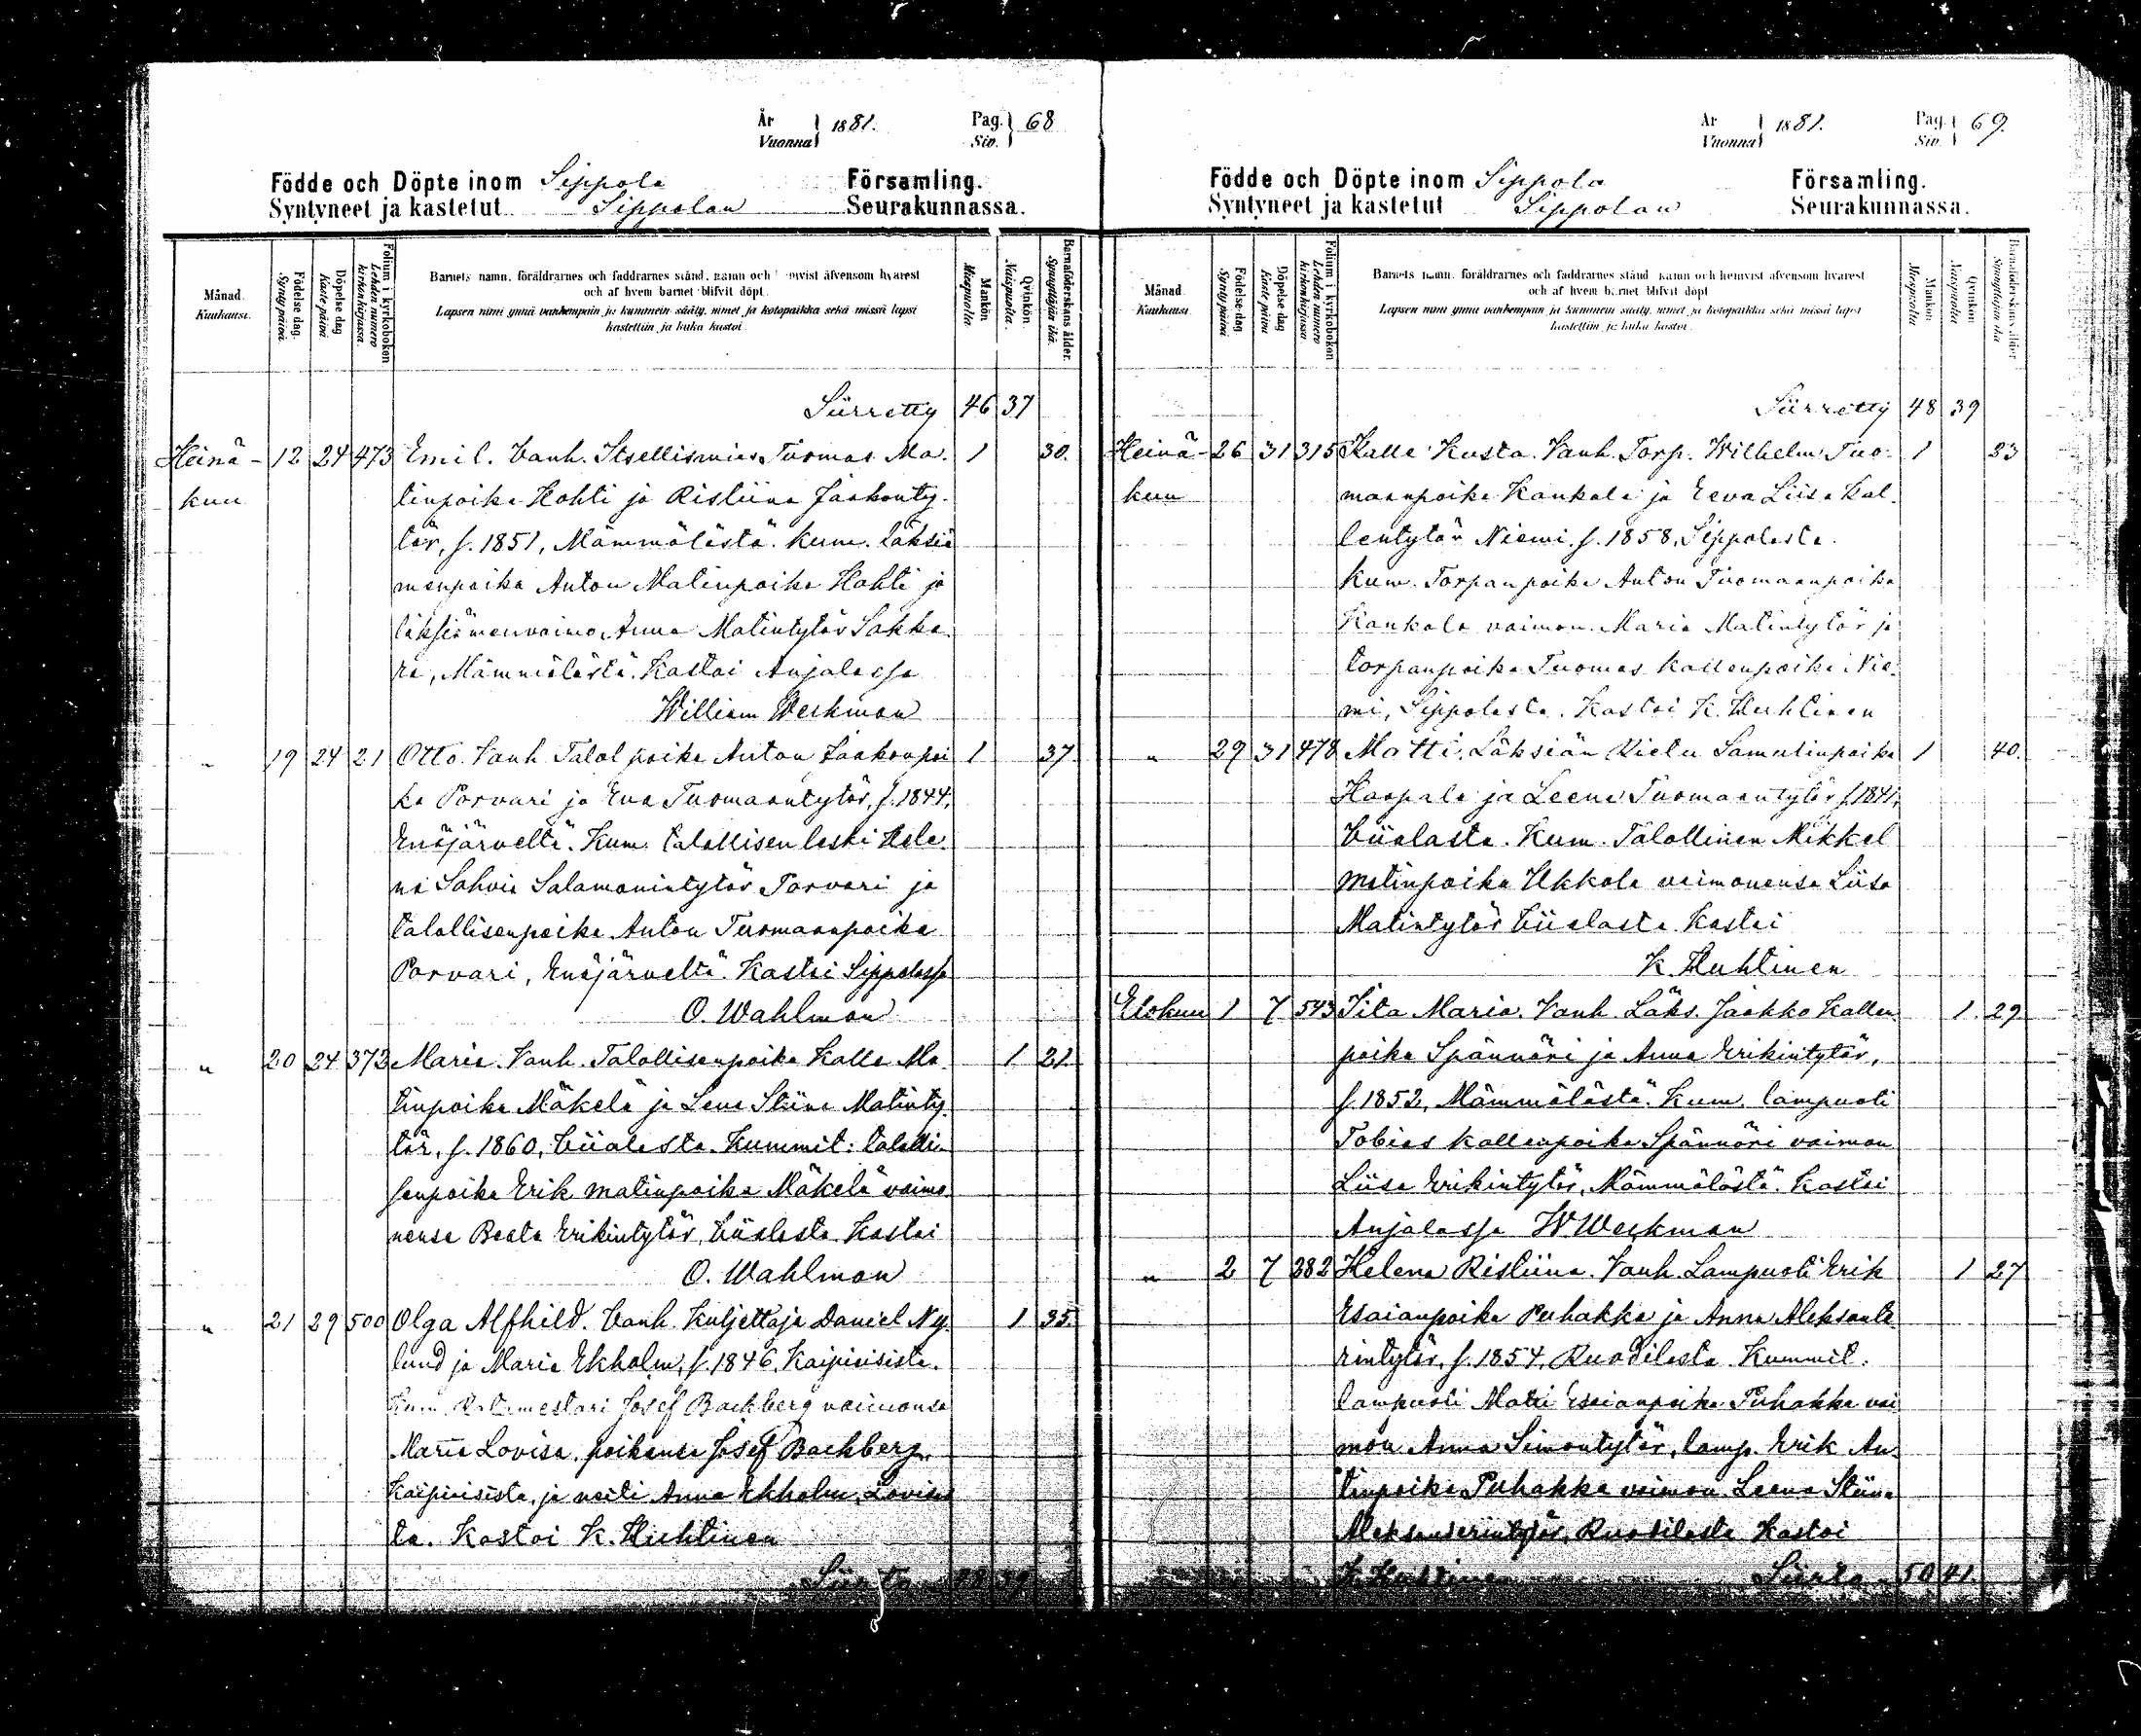 År
Vuonna } 1881.
Pag.
Siv. } 68
Födde och Döpte inom Sippola Församling.
Syntyneet ja kastetut Sippolan Seurakunnassa.
Månad.
Kuukausi.
Födelse dag.
Syntypäivä.
Döpelse dag
Kastepäivä
Folium i kyrkobokon
Lehden numero
kirkonkirjassa.
Barnets namn, föräldrarnes och faddrarnes stånd, namn och hemvist äfvensom hvarest
och af hvem barnet blifvit döpt.
Lapsen nimi ynnä vanhempain ja kummein sääty, nimet ja kotopaikka sekä missä lapsi
kastettiin ja kuka kastoi.
Mankön
Miespuolta
Qvinkön
Naispuolta.
Barnaföderskans ålder.
Synnyttäjän ikä.
Siirretty 46 37
Heinä- 12 24 473 Emil. Vanh. Itsellismies Tuomas Ma- 1 30.
kuu tinpoika Hohti ja Ristiina Jaakonty-
tär, s. 1851, Mämmälästä. Kum. läksiä
menpoika Anton Matinpoika Hohti ja
läksiämenvaimo Anna Matintytär Sakka-
ra, Mämmälästä. Kastoi Anjalassa
William Weckman
" 19 24 21 Otto. Vanh. Talol. poika Anton Jaakonpoi 1 37.
ka Porvari ja Eva Tuomaantytär, s. 1844,
Enäjärveltä. Kum. talollisen leski Hele-
na Sohvia Salamonintytär Porvari ja
talollisenpoika Anton Tuomaanpoika
Porvari, Enäjärveltä. Kastoi Sippolassa
O. Wahlman
" 20 24 373 Maria. Vanh. Talollisenpoika Kalle Ma- 1 21.
tinpoika Mäkelä ja Lena Stiina Matinty-
tär, s. 1860, Viialasta. Kummit: talolli-
senpoika Erik Matinpoika Mäkelä vaimo-
nensa Beata Erikintytär, Viialasta. Kastoi
O. Wahlman
" 21 29 500 Olga Alfhild. Vanh. Kuljettaja Daniel Ny- 1 35.
lund ja Maria Ekholm, s. 1846, Kaipiaisista.
Kum. Ratamestari Josef Backberg vaimonsa
Maria Lovisa, poikansa Josef Backberg
Kaipiaisista, ja neiti Anna Ekholm, Lovisas
ta. Kastoi K. Huhtinen
Siirto 48 39
År
Vuonna } 1881.
Pag.
Siv. } 69.
Födde och Döpte inom Sippola Församling.
Syntyneet ja kastetut Sippolan Seurakunnassa.
Månad.
Kuukausi.
Födelse dag.
Syntypäivä
Döpelse dag
Kastepäivä
Folium i kyrkobokon
Lehden numero
kirkonkirjassa
Barnets namn, föräldrarnes och faddrarnes stånd, namn och hemvist äfvensom hvarest
och af hvem barnet blifvit döpt
Lapsen nimi ynnä vanhempain ja kummein sääty, nimet ja kotopaikka sekä missä lapsi
kastettiin ja kuka kastoi.
Mankön
Miespuolta
Qvinkön
Naispuolta
Barnaföderskans ålder
Synnyttäjän ikä
Siirretty 48 39
Heinä- 26 31 315 Kalle Kusta. Vanh. Torp. Wilhelm Tuo- 1 23
kuu maanpoika Kankala ja Eeva Liisa Kal-
lentytär Niemi, s. 1858, Sippolasta.
Kum. Torpanpoika Anton Tuomaanpoika
Kankala vaimon. Maria Matintytär ja
torpanpoika Tuomas Kallenpoika Nie-
mi, Sippolasta. Kastoi K. Huhtinen
" 29 31 478 Matti. Läksiän Rietu Samulinpoika 1 40.
Haapala ja Leena Tuomaantytär s. 1841,
Viialasta. Kum. Talollinen Mikkel
Matinpoika Ukkola vaimonensa Liisa
Matintytär Viialasta. Kastoi
K. Huhtinen
Elokuu 1 7 543 Iita Maria. Vanh. Läks. Jaakko Kallen- 1 29
poika Spännäri ja Anna Erikintytär,
s. 1852, Mämmälästä. Kum. lampuoti
Tobias Kallenpoika Spännäri vaimon
Liisa Erikintytär, Mämmälästä. Kastoi
Anjalassa W Weckman
" 2 7 282 Helena Ristiina. Vanh. Lampuoti Erik 1 27
Esaianpoika Puhakka ja Anna Aleksante-
rintytär, s. 1854, Ruotilasta. Kummit.
lampuoti Matti Esaianpoika Puhakka vai
mon Anna Simontytär, lamp. Erik An-
tinpoika Puhakka vaimon Leena Stiina
Aleksanterintytär, Ruotilasta Kastoi
K. Huhtinen Siirto 50 41